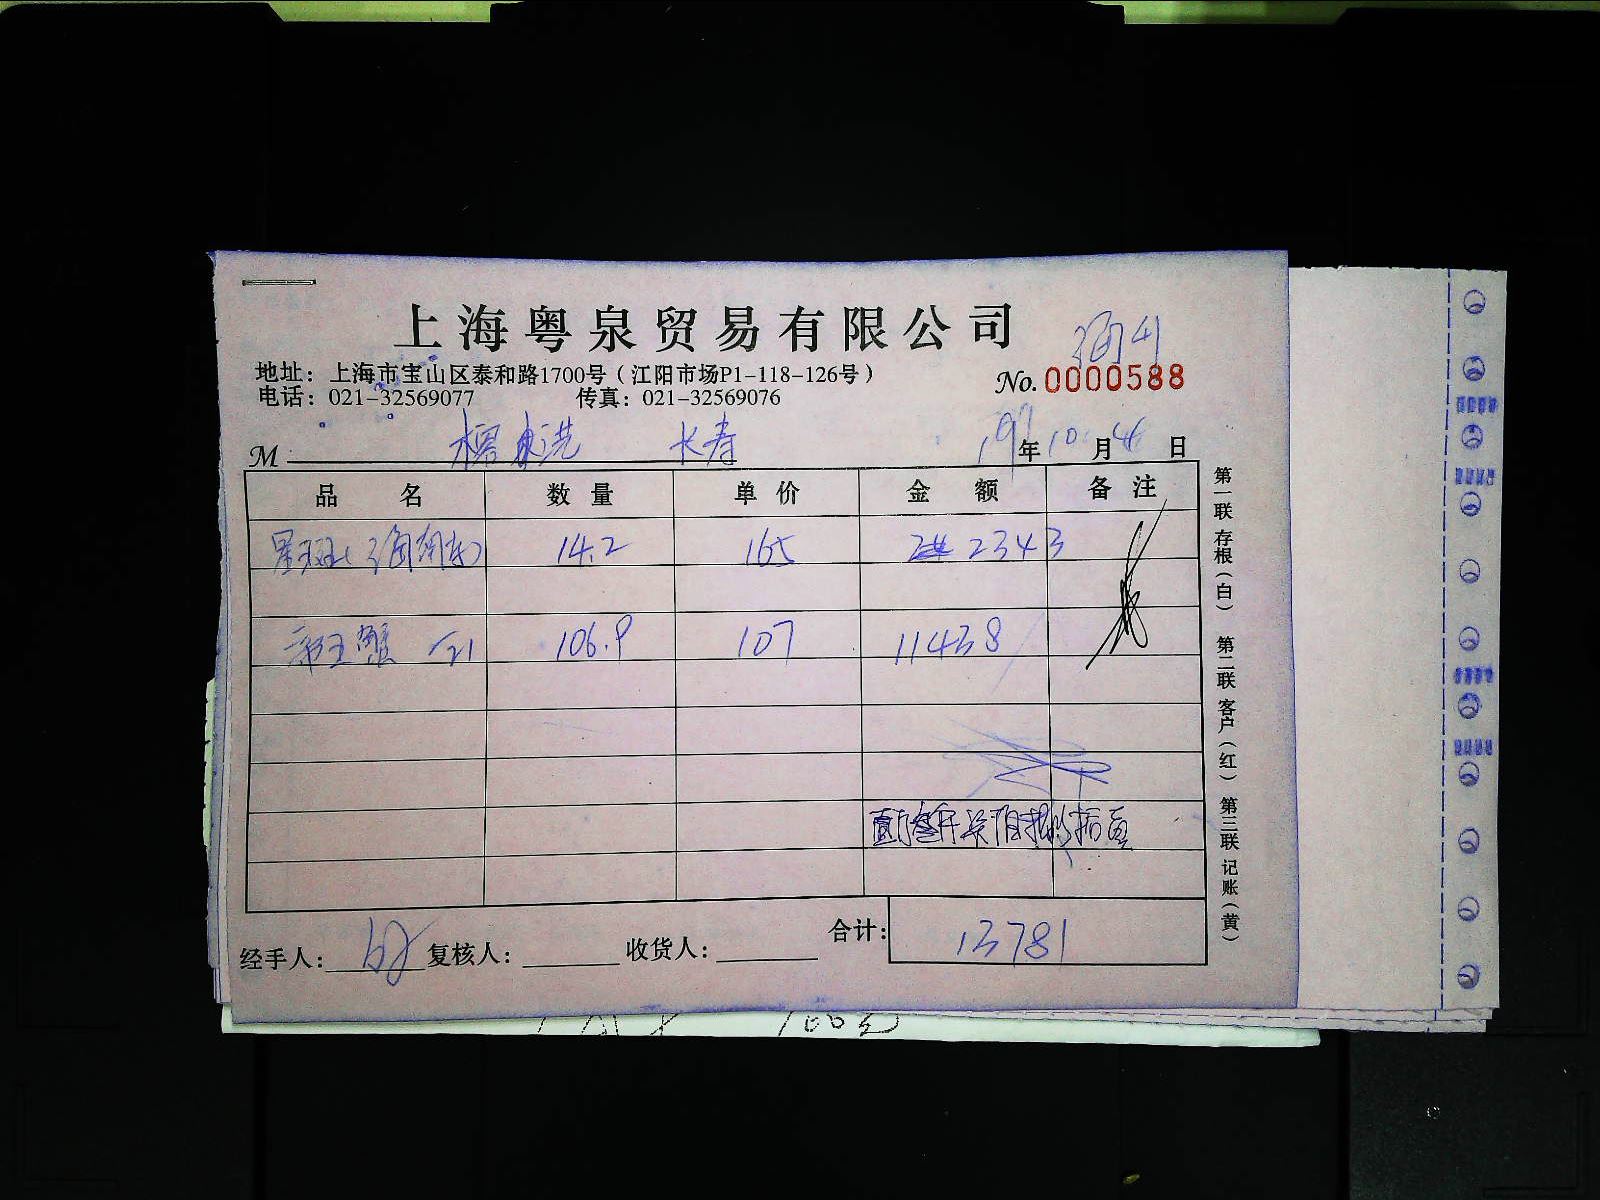 上海粤泉贸易有限公司
地址：上海市宝山区泰和路1700号（江阳市场P1-118-126号）
No.0000588
电话：021-32569077 传真：021-32569076
M 长寿 年 10 月 日
品名 数量 单价 金额 备注
星斑 14.2 165 2343
帝王蟹 106.9 107 11438
合计： 13781
经手人： 复核人： 收货人：
第一联 存根（白） 第二联 客户（红） 第三联 记账（黄）